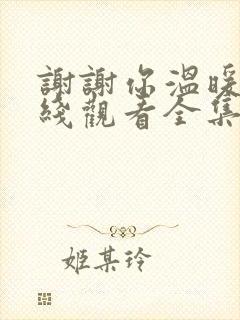 謝謝你溫暖
綫觀看全集
姬某玲